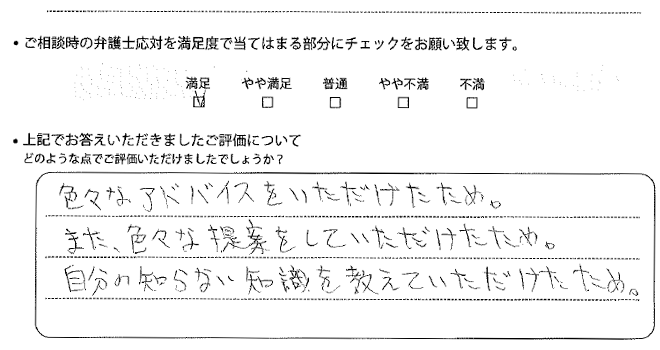 ・ご相談時の弁護士応対を満足度で当てはまる部分にチェックをお願い致します。
満足 やや満足 普通 やや不満 不満
☑ □ □ □ □
・上記でお答えいただきましたご評価について
どのような点でご評価いただけましたでしょうか？
色々なアドバイスをいただけたため。
また、色々な提案をしていただけたため。
自分の知らない知識を教えていただけたため。